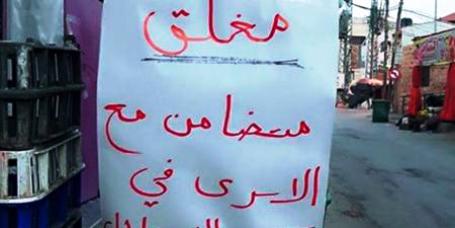 مغلق
متضامن مع
الاسرى في